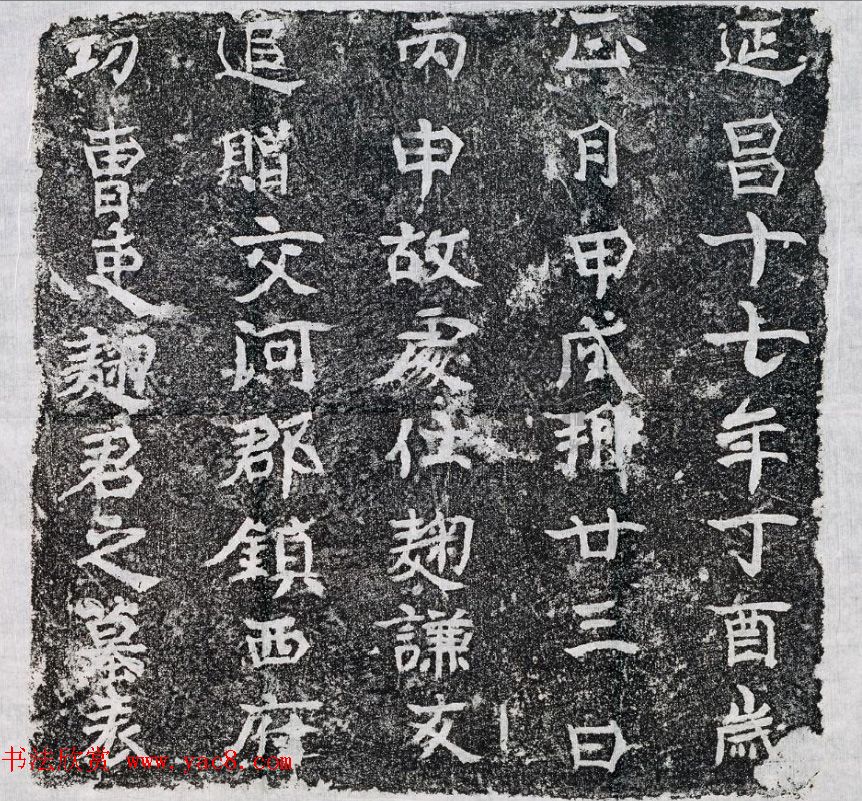 延昌十七年丁酉歲
正月甲戌朔廿三日
丙申故處仕麴謙友
追贈交河郡鎮西府
功曹吏麹君之墓表
书法欣赏 www.yac8.com